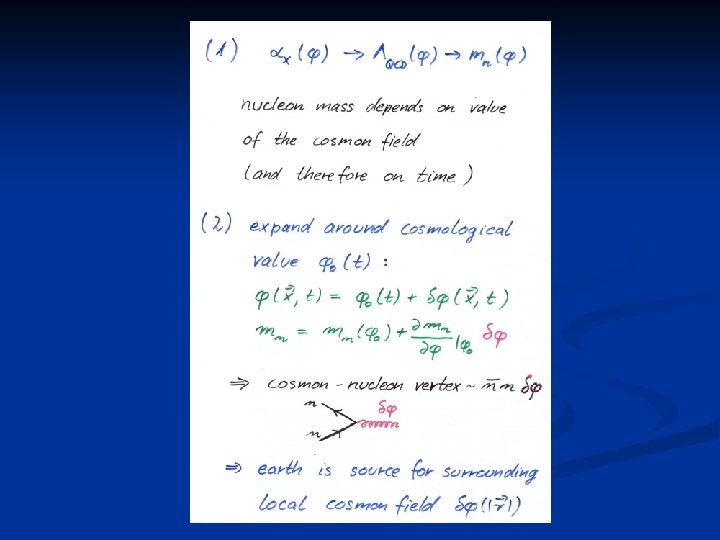 (1) αₓ(φ) → Λ_QCD(φ) → mₙ(φ)
nucleon mass depends on value
of the cosmon field
(and therefore on time)
(2) expand around cosmological
value φ₀(t) :
φ(x⃗, t) = φ₀(t) + δφ(x⃗, t)
mₙ = mₙ(φ₀) + ∂mₙ/∂φ |φ₀ δφ
⇒ cosmon - nucleon vertex ~ n̄n δφ
n δφ
n
⇒ earth is source for surrounding
local cosmon field δφ(|r⃗|)